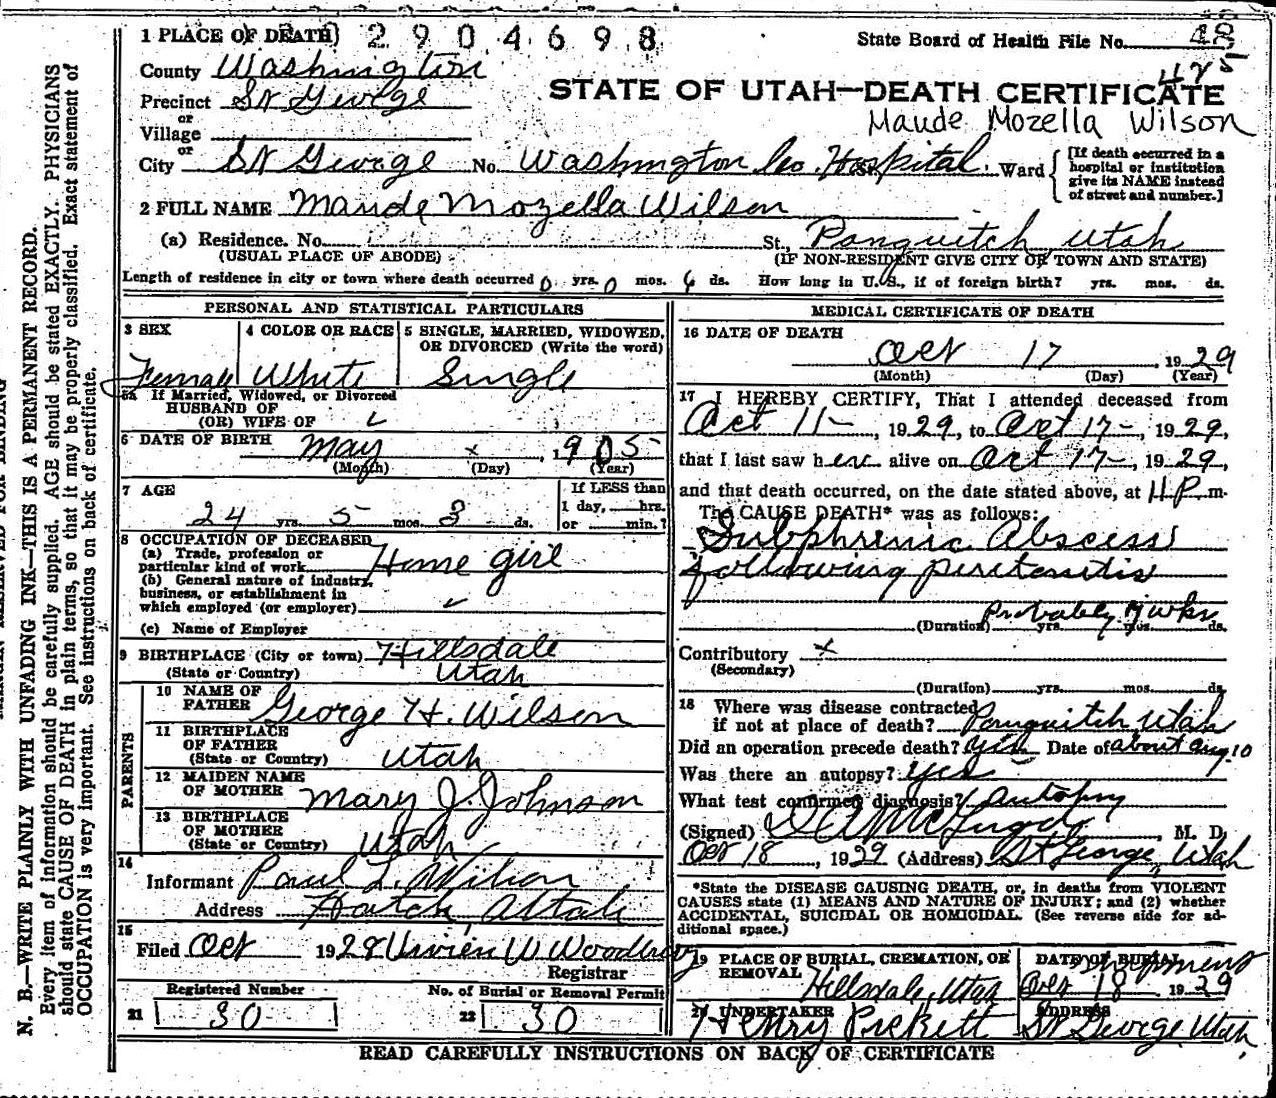 1 PLACE OF DEATH 2904698
State Board of Health File No. 48
425
County Washington
STATE OF UTAH—DEATH CERTIFICATE
Precinct St George
or
Maude Mozella Wilson
Village
or
City St George No. Washington Co. Hospital. Ward
[If death occurred in a hospital or institution give its NAME instead of street and number.]
2 FULL NAME Maude Mozella Wilson
(a) Residence. No. St., Panguitch Utah
(USUAL PLACE OF ABODE) (IF NON-RESIDENT GIVE CITY OR TOWN AND STATE)
Length of residence in city or town where death occurred 0 yrs. 0 mos. 6 ds. How long in U.S., if of foreign birth? yrs. mos. ds.
PERSONAL AND STATISTICAL PARTICULARS
3 SEX 4 COLOR OR RACE 5 SINGLE, MARRIED, WIDOWED, OR DIVORCED (Write the word)
Female White Single
5a If Married, Widowed, or Divorced
HUSBAND OF
(OR) WIFE OF
6 DATE OF BIRTH May x, 1905
(Month) (Day) (Year)
7 AGE If LESS than
1 day, hrs.
24 yrs. 5 mos. 3 ds. or min.?
8 OCCUPATION OF DECEASED
(a) Trade, profession or
particular kind of work Home girl
(b) General nature of industry,
business, or establishment in
which employed (or employer)
(c) Name of Employer
9 BIRTHPLACE (City or town) Hillsdale
(State or Country) Utah
PARENTS
10 NAME OF
FATHER George H. Wilson
11 BIRTHPLACE
OF FATHER
(State or Country) Utah
12 MAIDEN NAME
OF MOTHER Mary J. Johnson
13 BIRTHPLACE
OF MOTHER
(State or Country) Utah
14
Informant Paul L. Wilson
Address Hatch Utah
15
Filed Oct 1928 Vivien W Woodbury
Registrar
Registered Number No. of Burial or Removal Permit
21 30 22 30
MEDICAL CERTIFICATE OF DEATH
16 DATE OF DEATH
Oct 17, 1929
(Month) (Day) (Year)
17 I HEREBY CERTIFY, That I attended deceased from
Oct 11-, 1929, to Oct 17-, 1929,
that I last saw her alive on Oct 17-, 1929,
and that death occurred, on the date stated above, at H P m.
The CAUSE DEATH* was as follows:
Subphrenic Abscess
following peritonitis
Probably wks
(Duration) yrs. mos. ds.
Contributory x
(Secondary)
(Duration) yrs. mos. ds.
18 Where was disease contracted
if not at place of death? Panguitch Utah
Did an operation precede death? yes Date of about Aug. 10
Was there an autopsy? yes
What test confirmed diagnosis? Autopsy
(Signed) M. D.
Oct 18, 1929 (Address) St George, Utah
*State the DISEASE CAUSING DEATH, or, in deaths from VIOLENT
CAUSES state (1) MEANS AND NATURE OF INJURY; and (2) whether
ACCIDENTAL, SUICIDAL OR HOMICIDAL. (See reverse side for ad-
ditional space.)
19 PLACE OF BURIAL, CREMATION, OR REMOVAL DATE OF BURIAL shipment
Hillsdale, Utah Oct 18 1929
20 UNDERTAKER ADDRESS
Henry Pickett St George, Utah.
READ CAREFULLY INSTRUCTIONS ON BACK OF CERTIFICATE
N. B.—WRITE PLAINLY WITH UNFADING INK—THIS IS A PERMANENT RECORD.
Every item of information should be carefully supplied. AGE should be stated EXACTLY. PHYSICIANS
should state CAUSE OF DEATH in plain terms, so that it may be properly classified. Exact statement of
OCCUPATION is very important. See instructions on back of certificate.